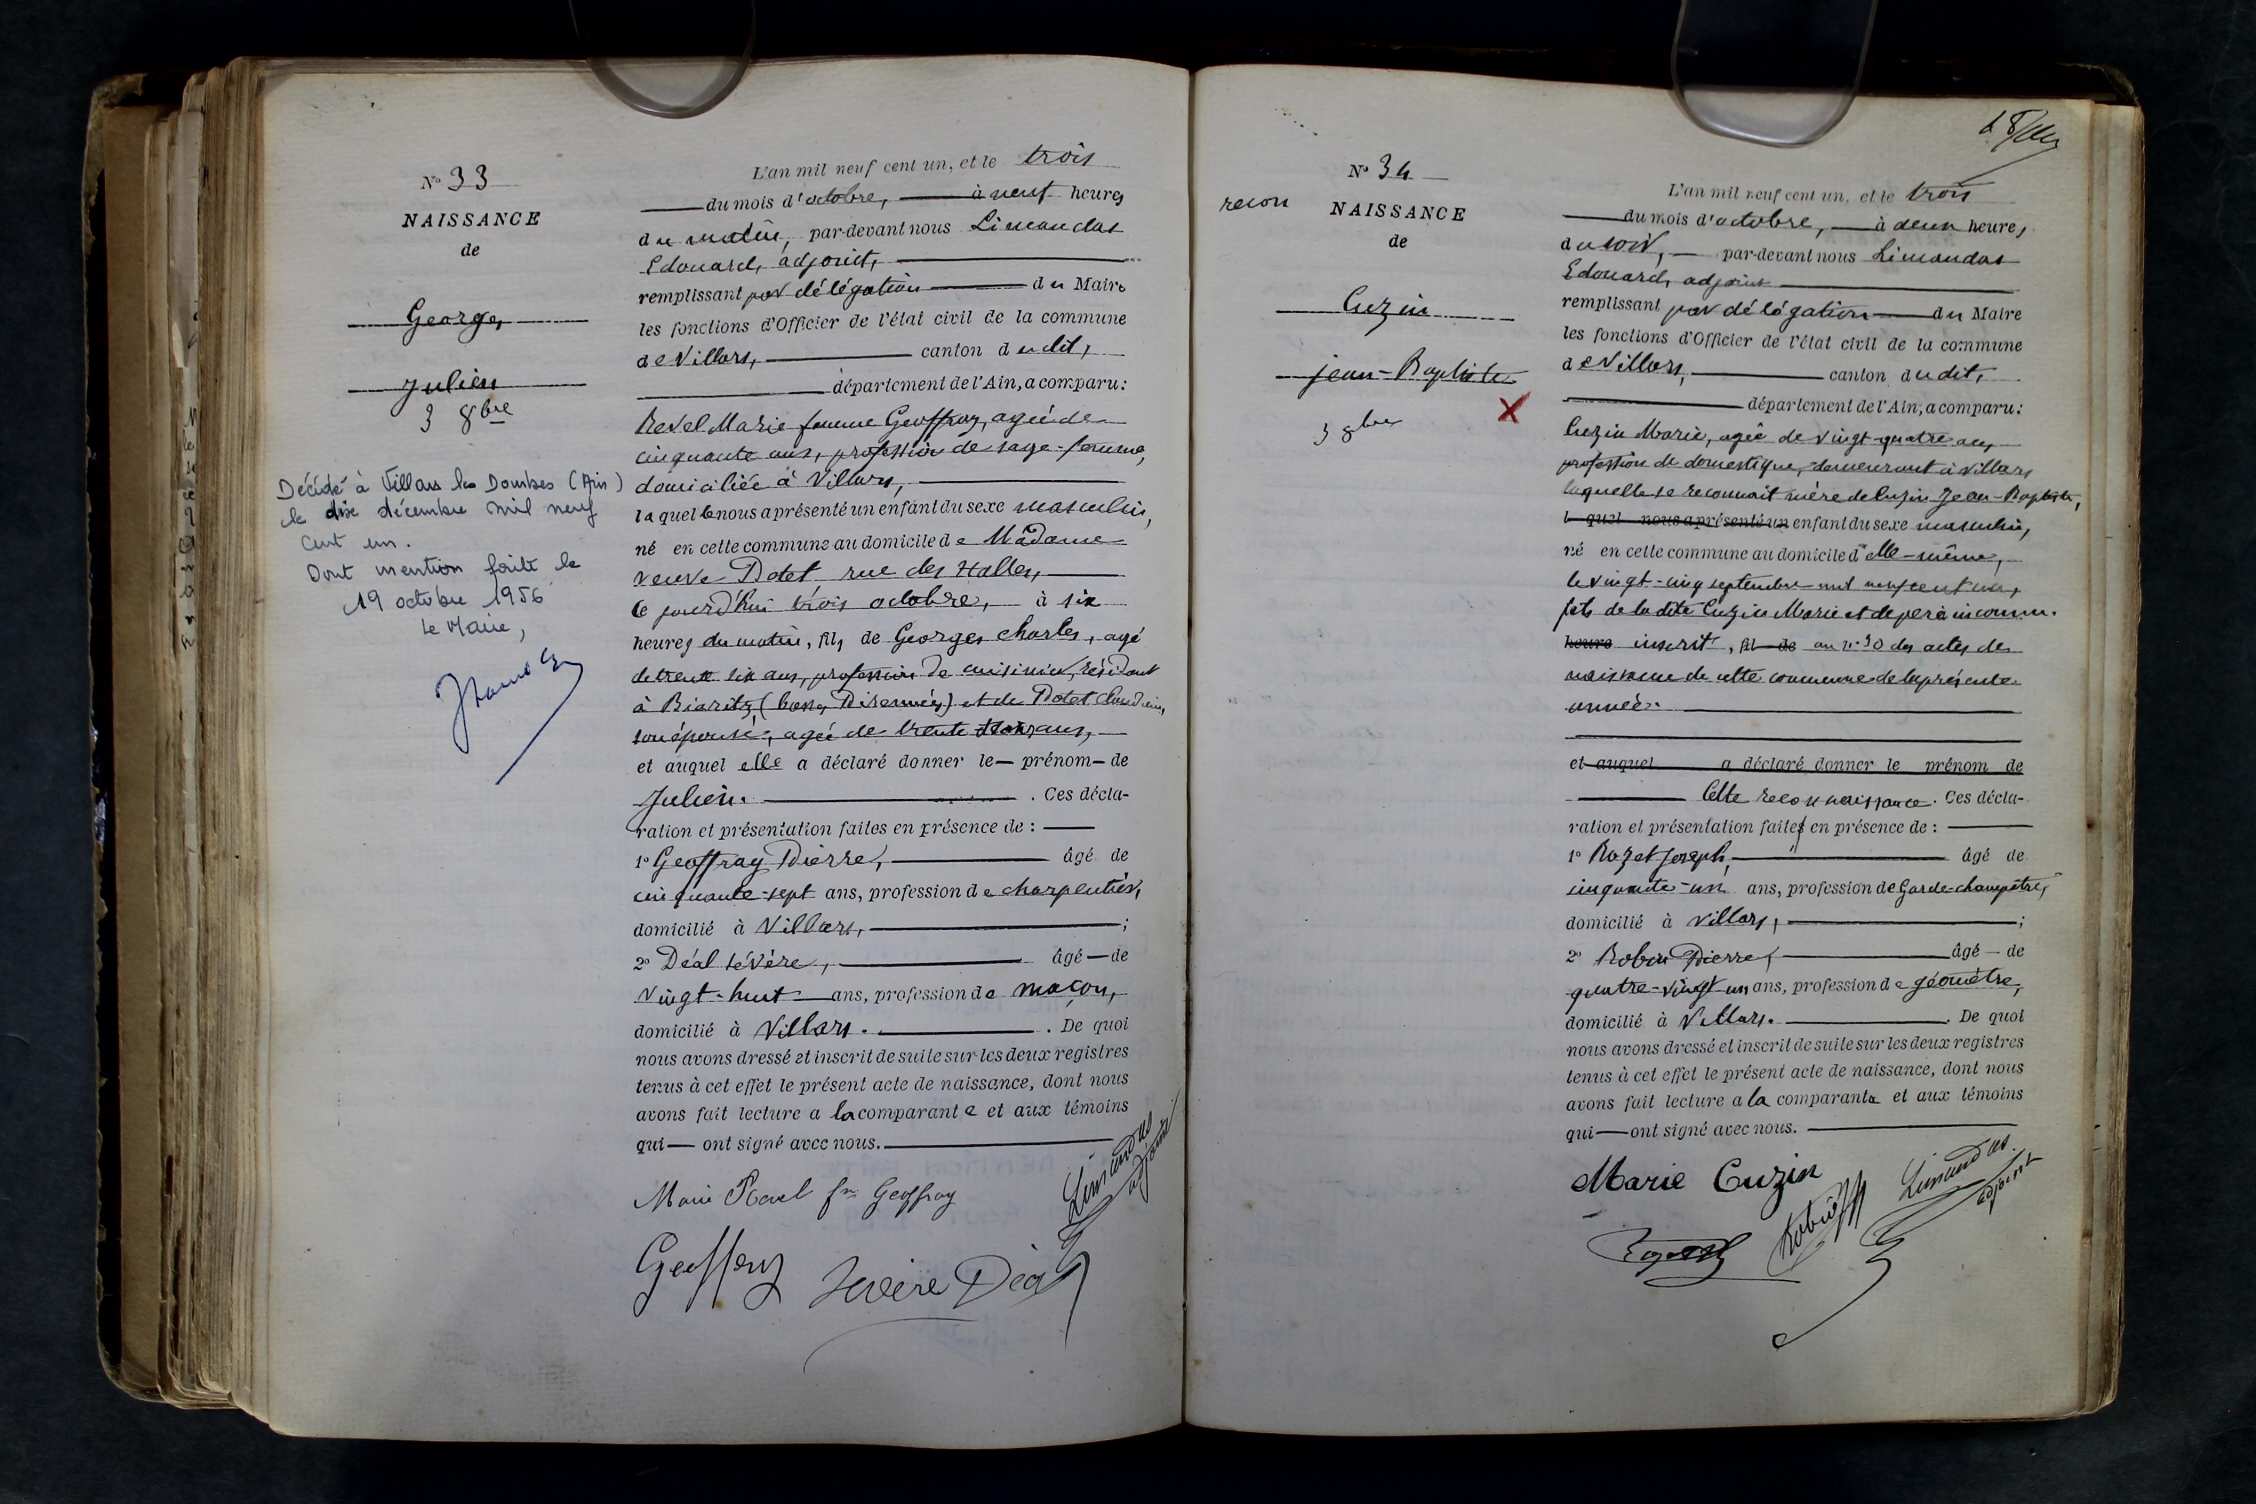 N° 33
NAISSANCE
de
Georges
Julien
3 8bre
Décédé à Villars les Dombes (Ain)
le dix décembre mil neuf
cent un.
Dont mention faite le
19 octobre 1956
Le Maire,
L'an mil neuf cent un, et le trois
du mois d'octobre, à neuf heures
du matin, par-devant nous Limandas
Edouard, adjoint,
remplissant par délégation du Maire
les fonctions d'Officier de l'état civil de la commune
de Villars, canton dudit,
département de l'Ain, a comparu:
Revel Marie femme Geoffray, agée de
cinquante ans, profession de sage-femme,
domiciliée à Villars,
laquelle nous a présenté un enfant du sexe masculin,
né en cette commune au domicile de Madame
veuve Dotet, rue des Halles,
ce jourd'hui trois octobre, à six
heures du matin, fils de Georges Charles, agé
de trente six ans, profession de cuisinier, résidant
à Biaritz (basses Pirennées) et de Dotet Claudine,
son épouse, agée de trente trois ans,
et auquel elle a déclaré donner le prénom de
Julien. Ces décla-
ration et présentation faites en présence de :
1° Geoffray Pierre, âgé de
cinquante-sept ans, profession de charpentier,
domicilié à Villars, ;
2° Déal Sévère, âgé de
vingt-huit ans, profession de maçon,
domicilié à Villars. De quoi
nous avons dressé et inscrit de suite sur les deux registres
tenus à cet effet le présent acte de naissance, dont nous
avons fait lecture a la comparante et aux témoins
qui ont signé avec nous.
Marie Revel fe Geoffray
Limandas
adjoint
Geoffray
Sévère Déal
18
recon
N° 34
NAISSANCE
de
Cuzin
Jean-Baptiste
X
3 8bre
L'an mil neuf cent un, et le trois
du mois d'octobre, à deux heures
du soir, par-devant nous Limandas
Edouard, adjoint
remplissant par délégation du Maire
les fonctions d'Officier de l'état civil de la commune
de Villars, canton dudit,
département de l'Ain, a comparu:
Cuzin Marie, agée de vingt-quatre ans,
profession de domestique, demeurant à Villars,
laquelle se reconnait mère de Cuzin Jean-Baptiste,
l quel nous a présenté un enfant du sexe masculin,
né en cette commune au domicile d'elle-même,
le vingt-cinq septembre mil neuf cent un,
fils de la dite Cuzin Marie et de père inconnu.
heure inscrit, fil de au n° 30 des actes de
naissance de cette commune de la présente
année.
et auquel a déclaré donner le prénom de
Cette reconnaissance. Ces décla-
ration et présentation faites en présence de :
1° Rozet Joseph, âgé de
cinquante-un ans, profession de Garde-champêtre,
domicilié à Villars, ;
2° Robin Pierre, âgé de
quatre-vingt un ans, profession de géomètre,
domicilié à Villars. De quoi
nous avons dressé et inscrit de suite sur les deux registres
tenus à cet effet le présent acte de naissance, dont nous
avons fait lecture a la comparante et aux témoins
qui ont signé avec nous.
Marie Cuzin
Limandas
adjoint
Robin
Rozet